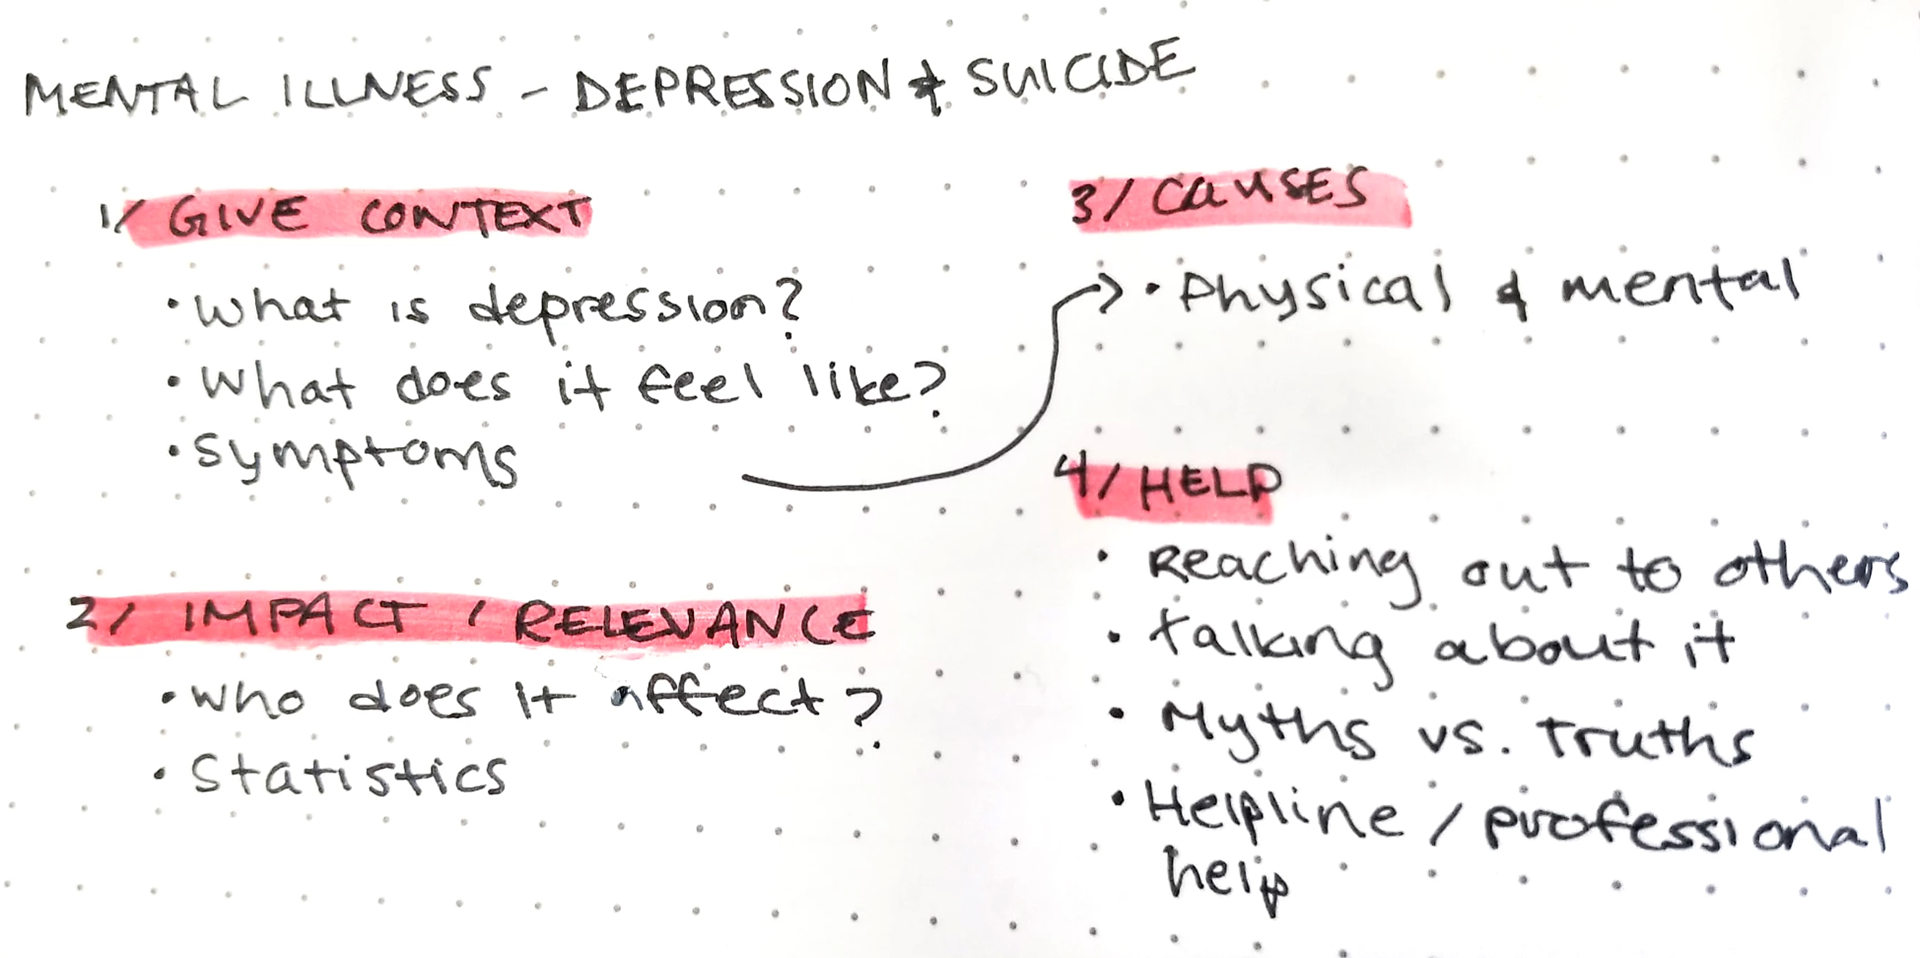 MENTAL ILLNESS - DEPRESSION & SUICIDE
1/ GIVE CONTEXT
• What is depression?
• What does it feel like?
• Symptoms
2/ IMPACT / RELEVANCE
• Who does it affect?
• Statistics
3/ CAUSES
• Physical & mental
4/ HELP
• Reaching out to others
• Talking about it
• Myths vs. Truths
• Helpline / professional
help